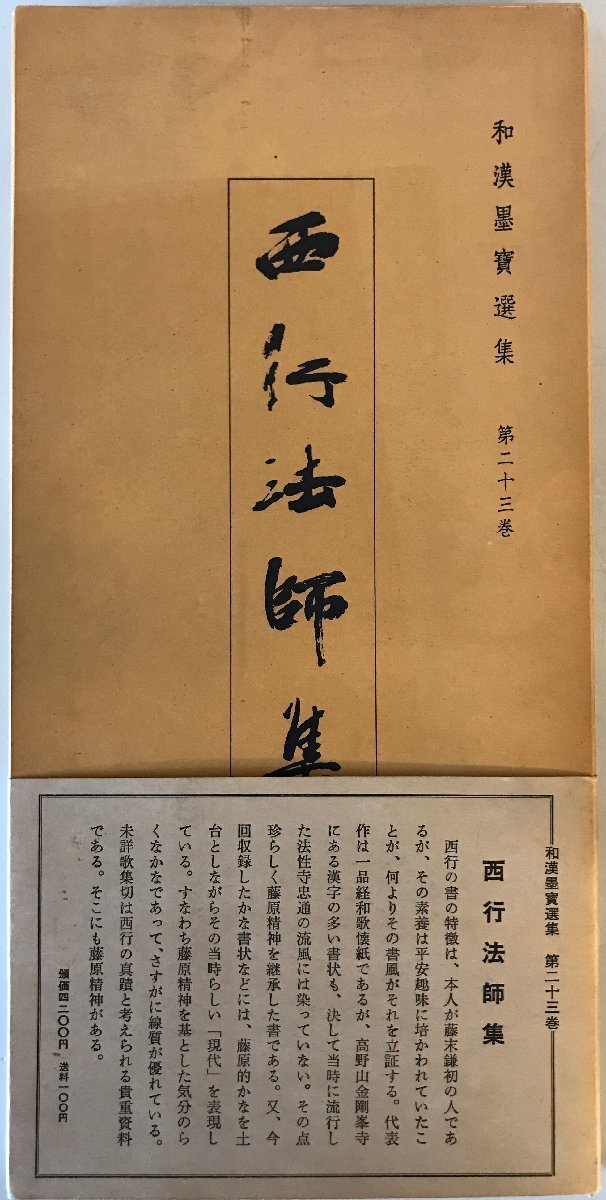 和漢墨寶選集 第二十三巻
西行法師集
和漢墨寶選集 第二十三巻
西行法師集
西行の書の特徴は、本人が藤末鎌初の人であ
るが、その素養は平安趣味に培かわれていたこ
とが、何よりその書風がそれを立証する。代表
作は一品経和歌懐紙であるが、高野山金剛峯寺
にある漢字の多い書状も、決して当時に流行し
た法性寺忠通の流風には染っていない。その点
珍らしく藤原精神を継承した書である。又、今
回収録したかな書状などには、藤原的かなを土
台としながらその当時らしい「現代」を表現し
ている。すなわち藤原精神を基とした気分のら
くなかなであって、さすがに線質が優れている。
未詳歌集切は西行の真蹟と考えられる貴重資料
である。そこにも藤原精神がある。
頒価四二〇〇円 送料一〇〇円